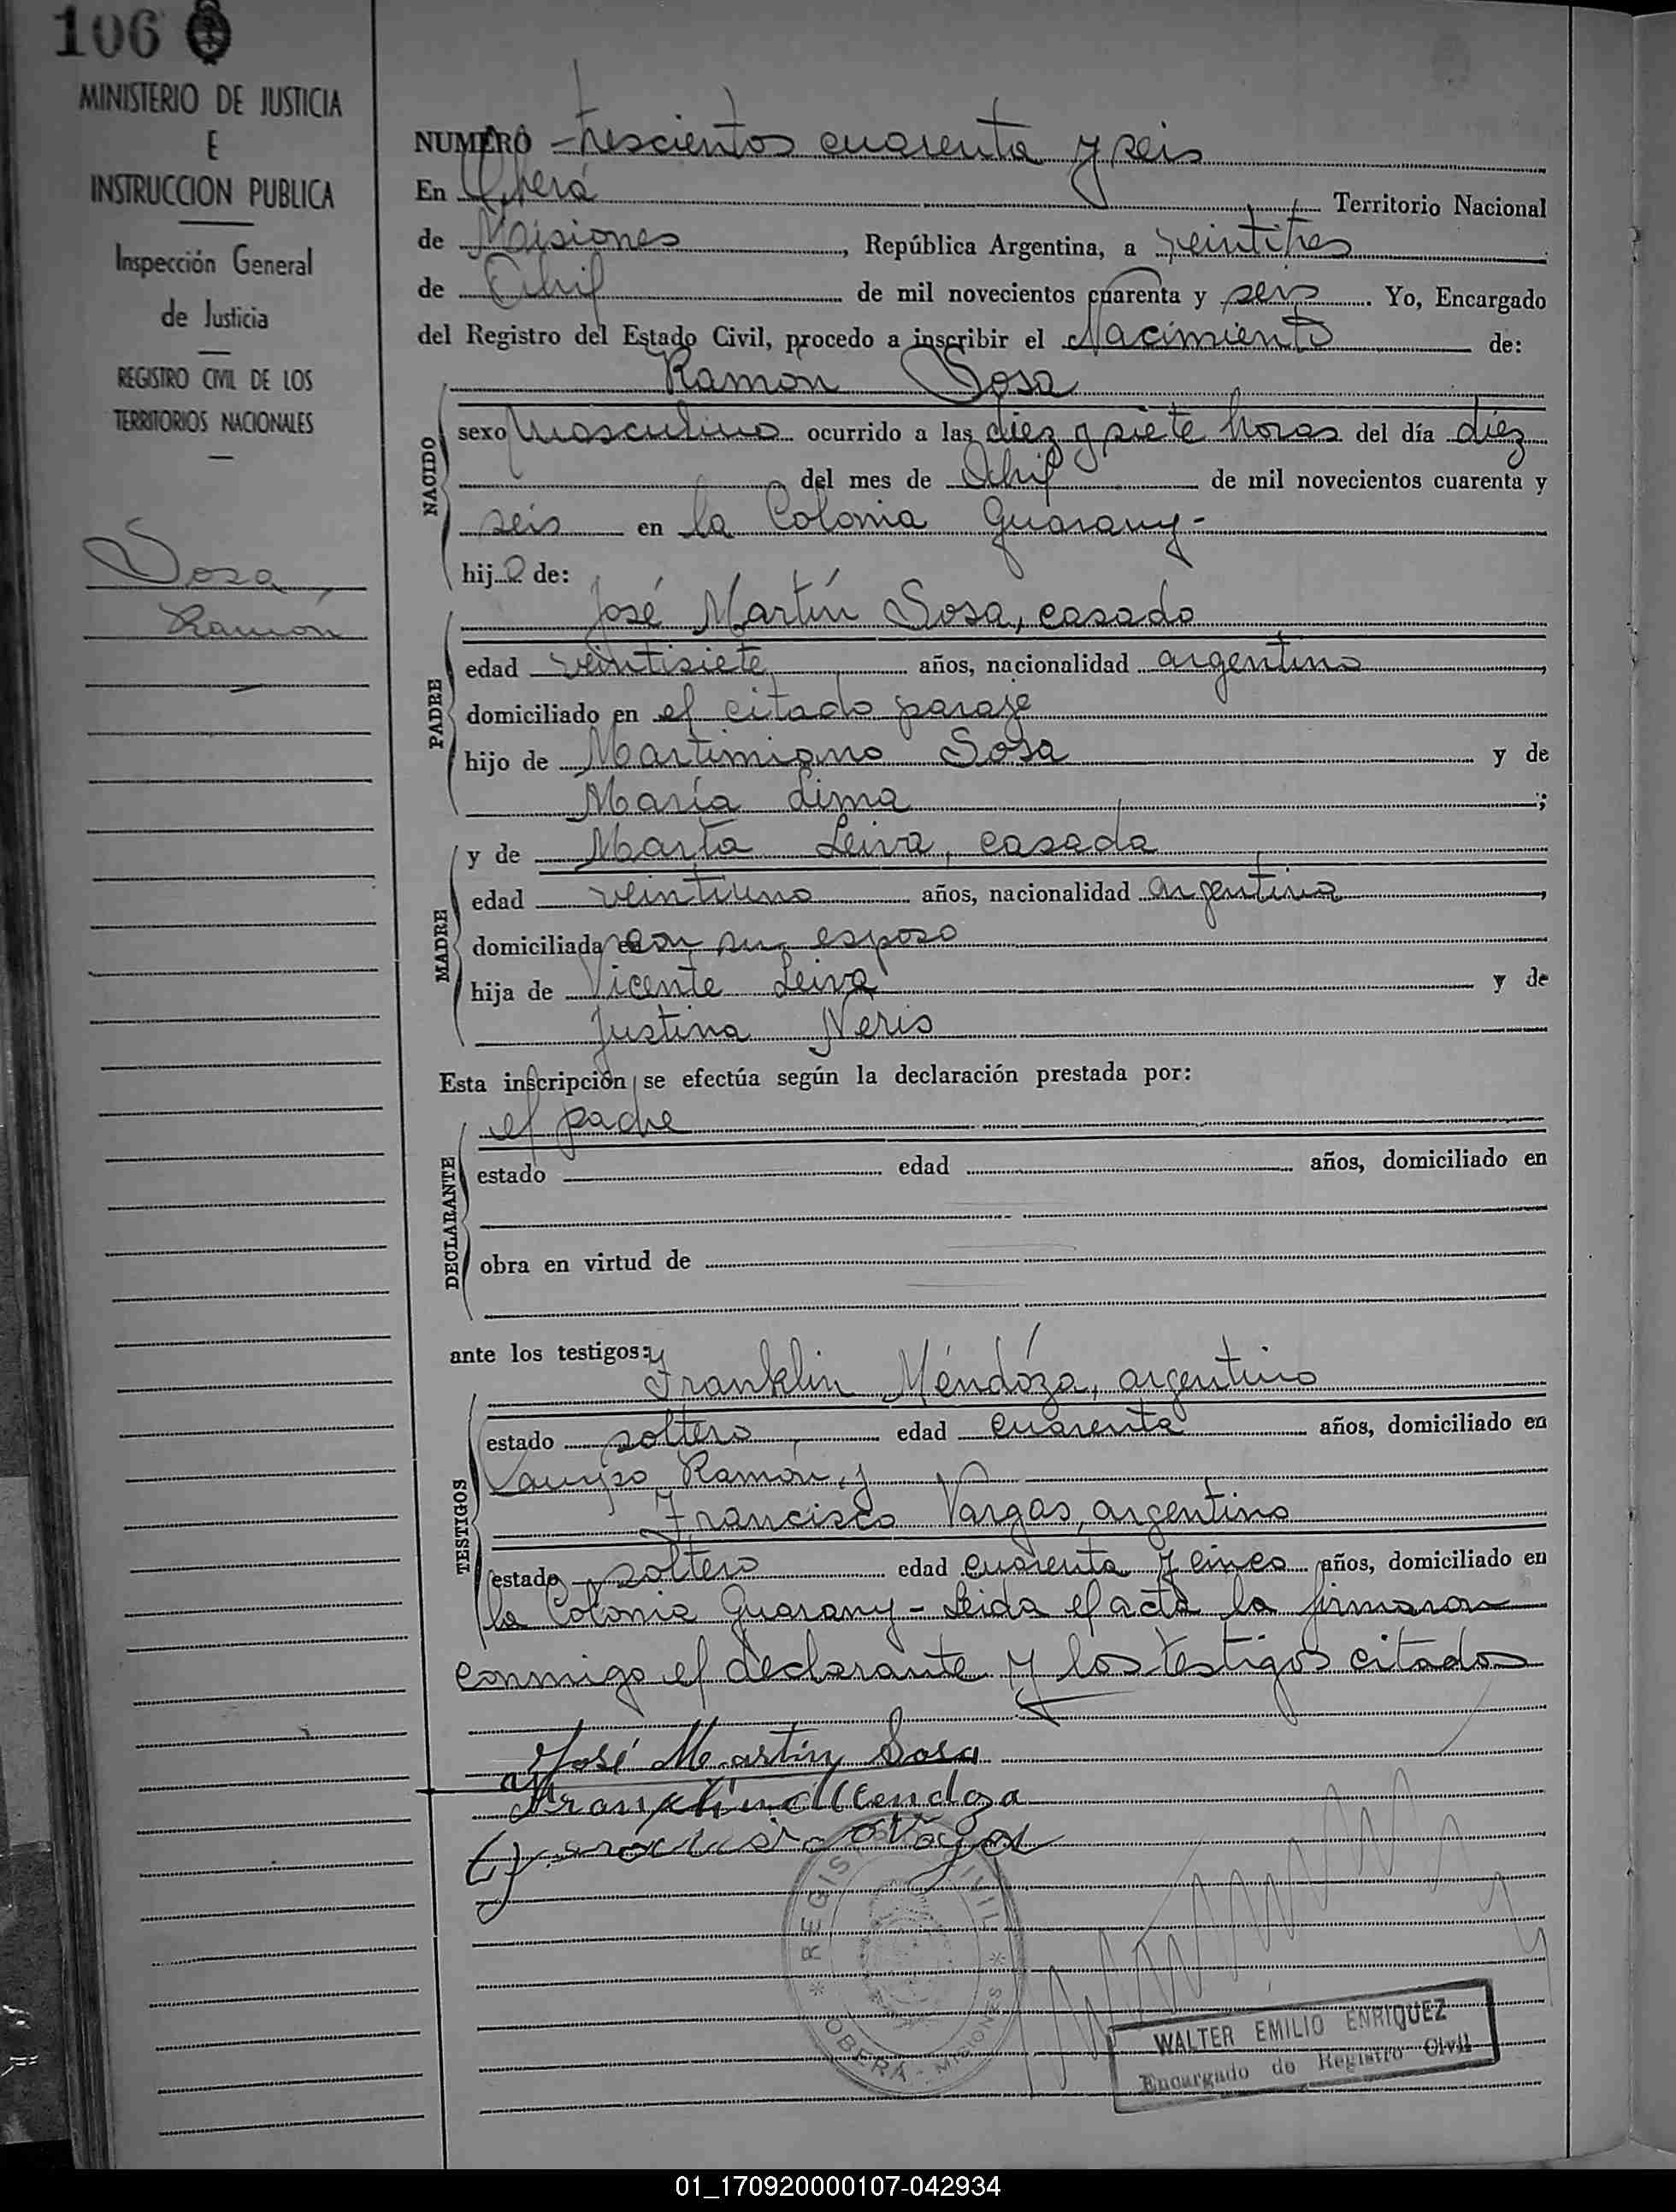 106
MINISTERIO DE JUSTICIA
E
INSTRUCCION PUBLICA
Inspección General
de Justicia
REGISTRO CIVIL DE LOS
TERRITORIOS NACIONALES
Sosa,
Ramón
NUMERO trescientos cuarenta y seis
En Oberá Territorio Nacional
de Misiones, República Argentina, a veintitres
de Abril de mil novecientos cuarenta y seis. Yo, Encargado
del Registro del Estado Civil, procedo a inscribir el Nacimiento de:
Ramon Sosa
NACIDO
sexo Masculino ocurrido a las diez y siete horas del día diez
del mes de Abril de mil novecientos cuarenta y
seis en la Colonia Guarany-
hijo de:
José Martín Sosa, casado
PADRE
edad veintisiete años, nacionalidad argentino,
domiciliado en el citado paraje
hijo de Martimiano Sosa y de
María Lima;
y de Marta Leiva, casada
MADRE
edad veintiuno años, nacionalidad argentina,
domiciliada con su esposo
hija de Vicente Leiva y de
Justina Neris
Esta inscripción se efectúa según la declaración prestada por:
el padre
DECLARANTE
estado edad años, domiciliado en
obra en virtud de
ante los testigos:
Franklin Méndóza, argentino
TESTIGOS
estado soltero, edad cuarenta años, domiciliado en
Campo Ramón, y
Francisco Vargas, argentino
estado soltero edad cuarenta y cinco años, domiciliado en
la Colonia Guarany - Leida el acta la firmaron
conmigo el declarante y los testigos citados
José Martín Sosa
Franklin Mendoza
REGISTRO CIVIL
OBERA - MISIONES
WALTER EMILIO ENRIQUEZ
Encargado de Registro Civil
01_170920000107-042934